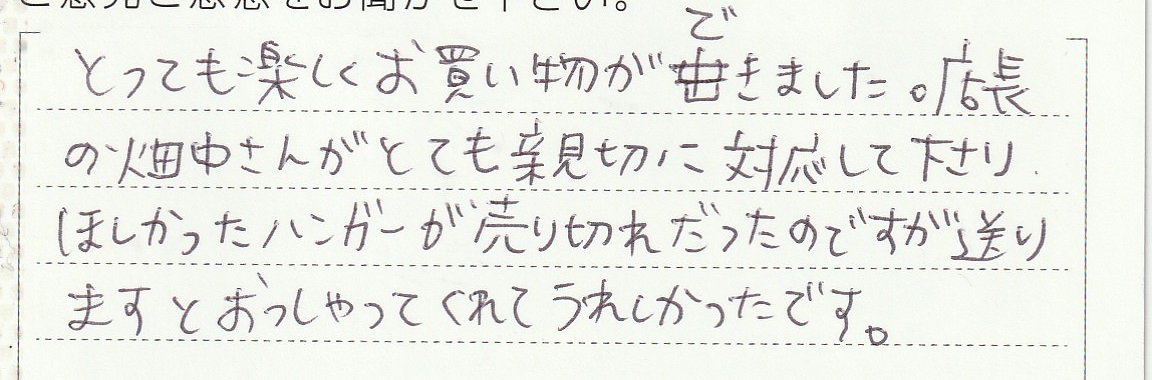 ご意見ご感想をお聞かせ下さい。
とっても楽しくお買い物ができました。店長
の畑中さんがとても親切に対応して下さり
ほしかったハンガーが売り切れだったのですが送り
ますとおっしゃってくれてうれしかったです。